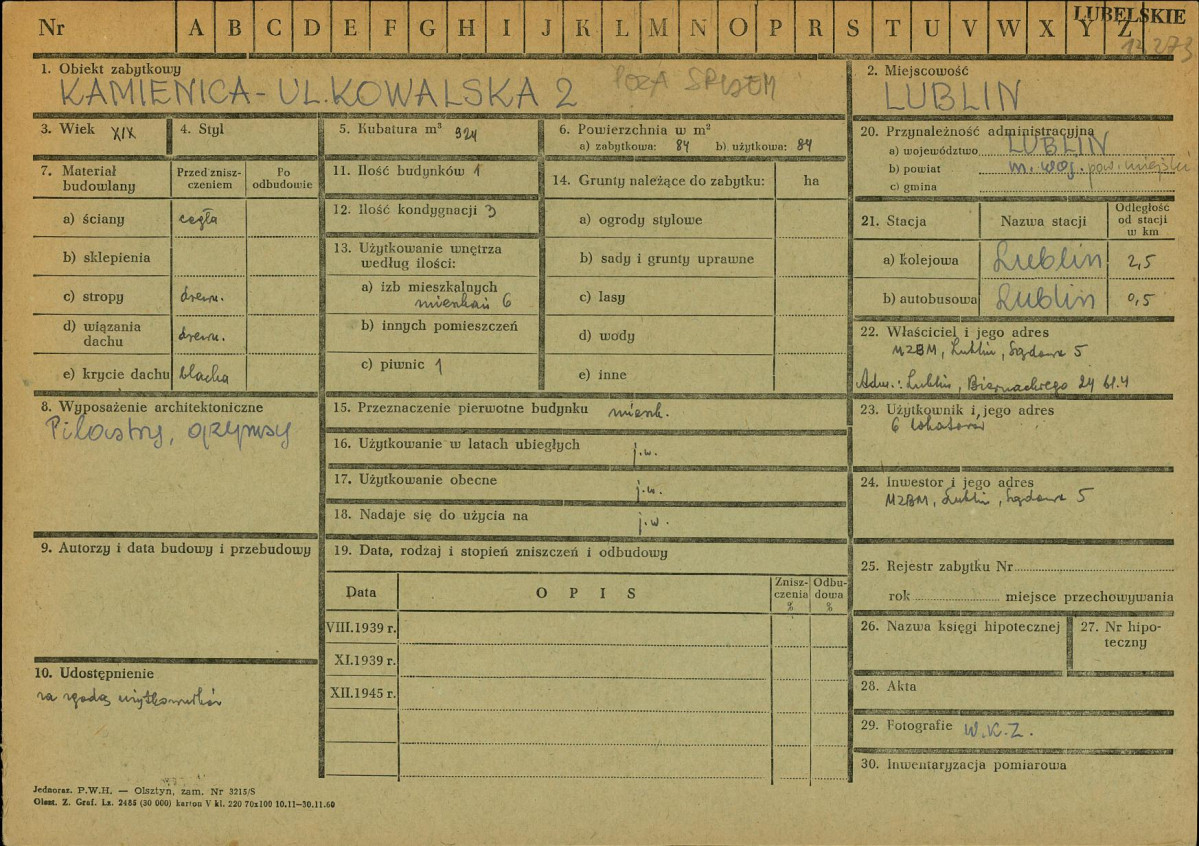 Nr A B C D E F G H I J K L M N O P R S T U V W X Y Z
LUBELSKIE
12273
1. Obiekt zabytkowy
KAMIENICA - UL. KOWALSKA 2 POZA SPISEM
2. Miejscowość
LUBLIN
3. Wiek XIX
4. Styl
5. Kubatura m³ 924
6. Powierzchnia w m²
a) zabytkowa: 84 b) użytkowa: 84
7. Materiał budowlany
Przed znisz-
czeniem
Po
odbudowie
a) ściany cegła
b) sklepienia
c) stropy drewn.
d) wiązania
dachu drewn.
e) krycie dachu blacha
8. Wyposażenie architektoniczne
Pilastry, gzymsy
9. Autorzy i data budowy i przebudowy
10. Udostępnienie
za zgodą użytkowników
11. Ilość budynków 1
12. Ilość kondygnacji 3
13. Użytkowanie wnętrza
według ilości:
a) izb mieszkalnych
mieszkań 6
b) innych pomieszczeń
c) piwnic 1
14. Grunty należące do zabytku: ha
a) ogrody stylowe
b) sady i grunty uprawne
c) lasy
d) wody
e) inne
15. Przeznaczenie pierwotne budynku mieszk.
16. Użytkowanie w latach ubiegłych j.w.
17. Użytkowanie obecne j.w.
18. Nadaje się do użycia na j.w.
19. Data, rodzaj i stopień zniszczeń i odbudowy
Data
O P I S
Znisz-
czenia
%
Odbu-
dowa
%
VIII.1939 r.
XI.1939 r.
XII.1945 r.
20. Przynależność administracyjna
a) województwo LUBLIN
b) powiat m. woj. pow. miejski
c) gmina
21. Stacja
Nazwa stacji
Odległość
od stacji
w km
a) kolejowa Lublin 2,5
b) autobusowa Lublin 0,5
22. Właściciel i jego adres
MZBM, Lublin, 5
Adm.: Lublin, Biernackiego 24
23. Użytkownik i jego adres
6 lokatorów
24. Inwestor i jego adres
MZBM, Lublin, 5
25. Rejestr zabytku Nr
rok miejsce przechowywania
26. Nazwa księgi hipotecznej
27. Nr hipo-
teczny
28. Akta
29. Fotografie W.K.Z.
30. Inwentaryzacja pomiarowa
Jednoraz. P.W.H. — Olsztyn, zam. Nr 3215/S
Olszt. Z. Graf. Lz. 2485 (30 000) karton V kl. 220 70x100 10.11—30.11.60